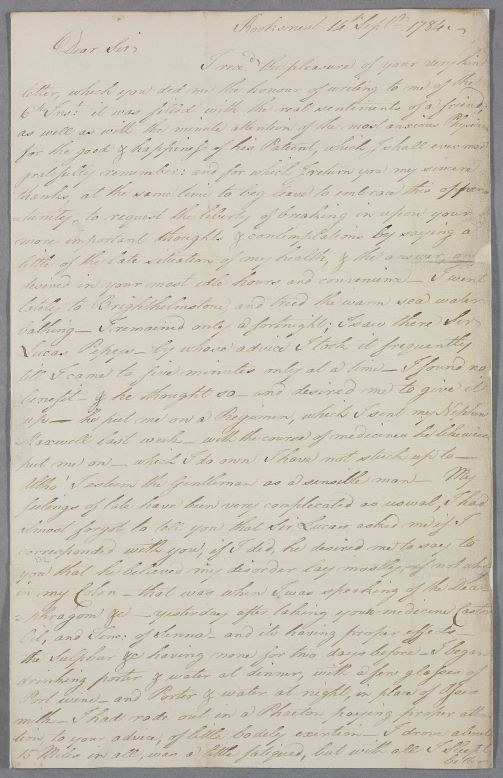 Rooksnest 14th Septr. 1784
Dear Sir,
I recd. the pleasure of your very kind
letter, which you did me the honour of writing to me of the
6th Inst. it was filled with the real sentiments of a friend;
as well as with the minute attention of the most anxious Physician
for the good & happiness of his Patient, which I shall ever most
gratefully remember: and for which I return you my sincere
thanks, at the same time to beg leave to embrace this oppor=
=tunity, to request the liberty of breaking in upon your
more important thoughts & contemplations by saying a
little of the late situation of my health, & the answer, only
desired in your most idle hours and convenience – I went
lately to Brighthelmstone, and tried the warm sea water
bathing – I remained only a fortnight; I saw there Sir
Lucas Pepys – by whose advice I took it frequently
till I came to five minutes only at a time – I found no
benefit – & he thought so – and desired me to give it
up – he put me on a Regimen, which I sent my Nephew
Maxwell last week – with the course of medicines he likewise
put me on – which I do own I have not stuck up to –
altho' I esteem the Gentleman as a sensible man – My
feelings of late have been very complecated as usual, I had
almost forgot to tell you that Sir Lucas asked me if I
corresponded with you, if I did, he desired me to say to
you that he believed my disorder lay mostly, if not wholly
132
in my Colon – that was when I was speaking of the Dia=
=phragm &c – yesterday after taking your medecine Castor
Oil, and Tinc: of Senna – and its having proper effects –
the Sulphur &c having none for two days before – I began
drinking porter & water at dinner, with a few glasses of
Port wine – and Porter & water at night, in place of Asses
milk – I had rode out in a Phaeton paying proper atten
tion to your advice, of little bodely exertion – I drove about
15 Miles in all, was a little fatigued, but with all I Slept
better